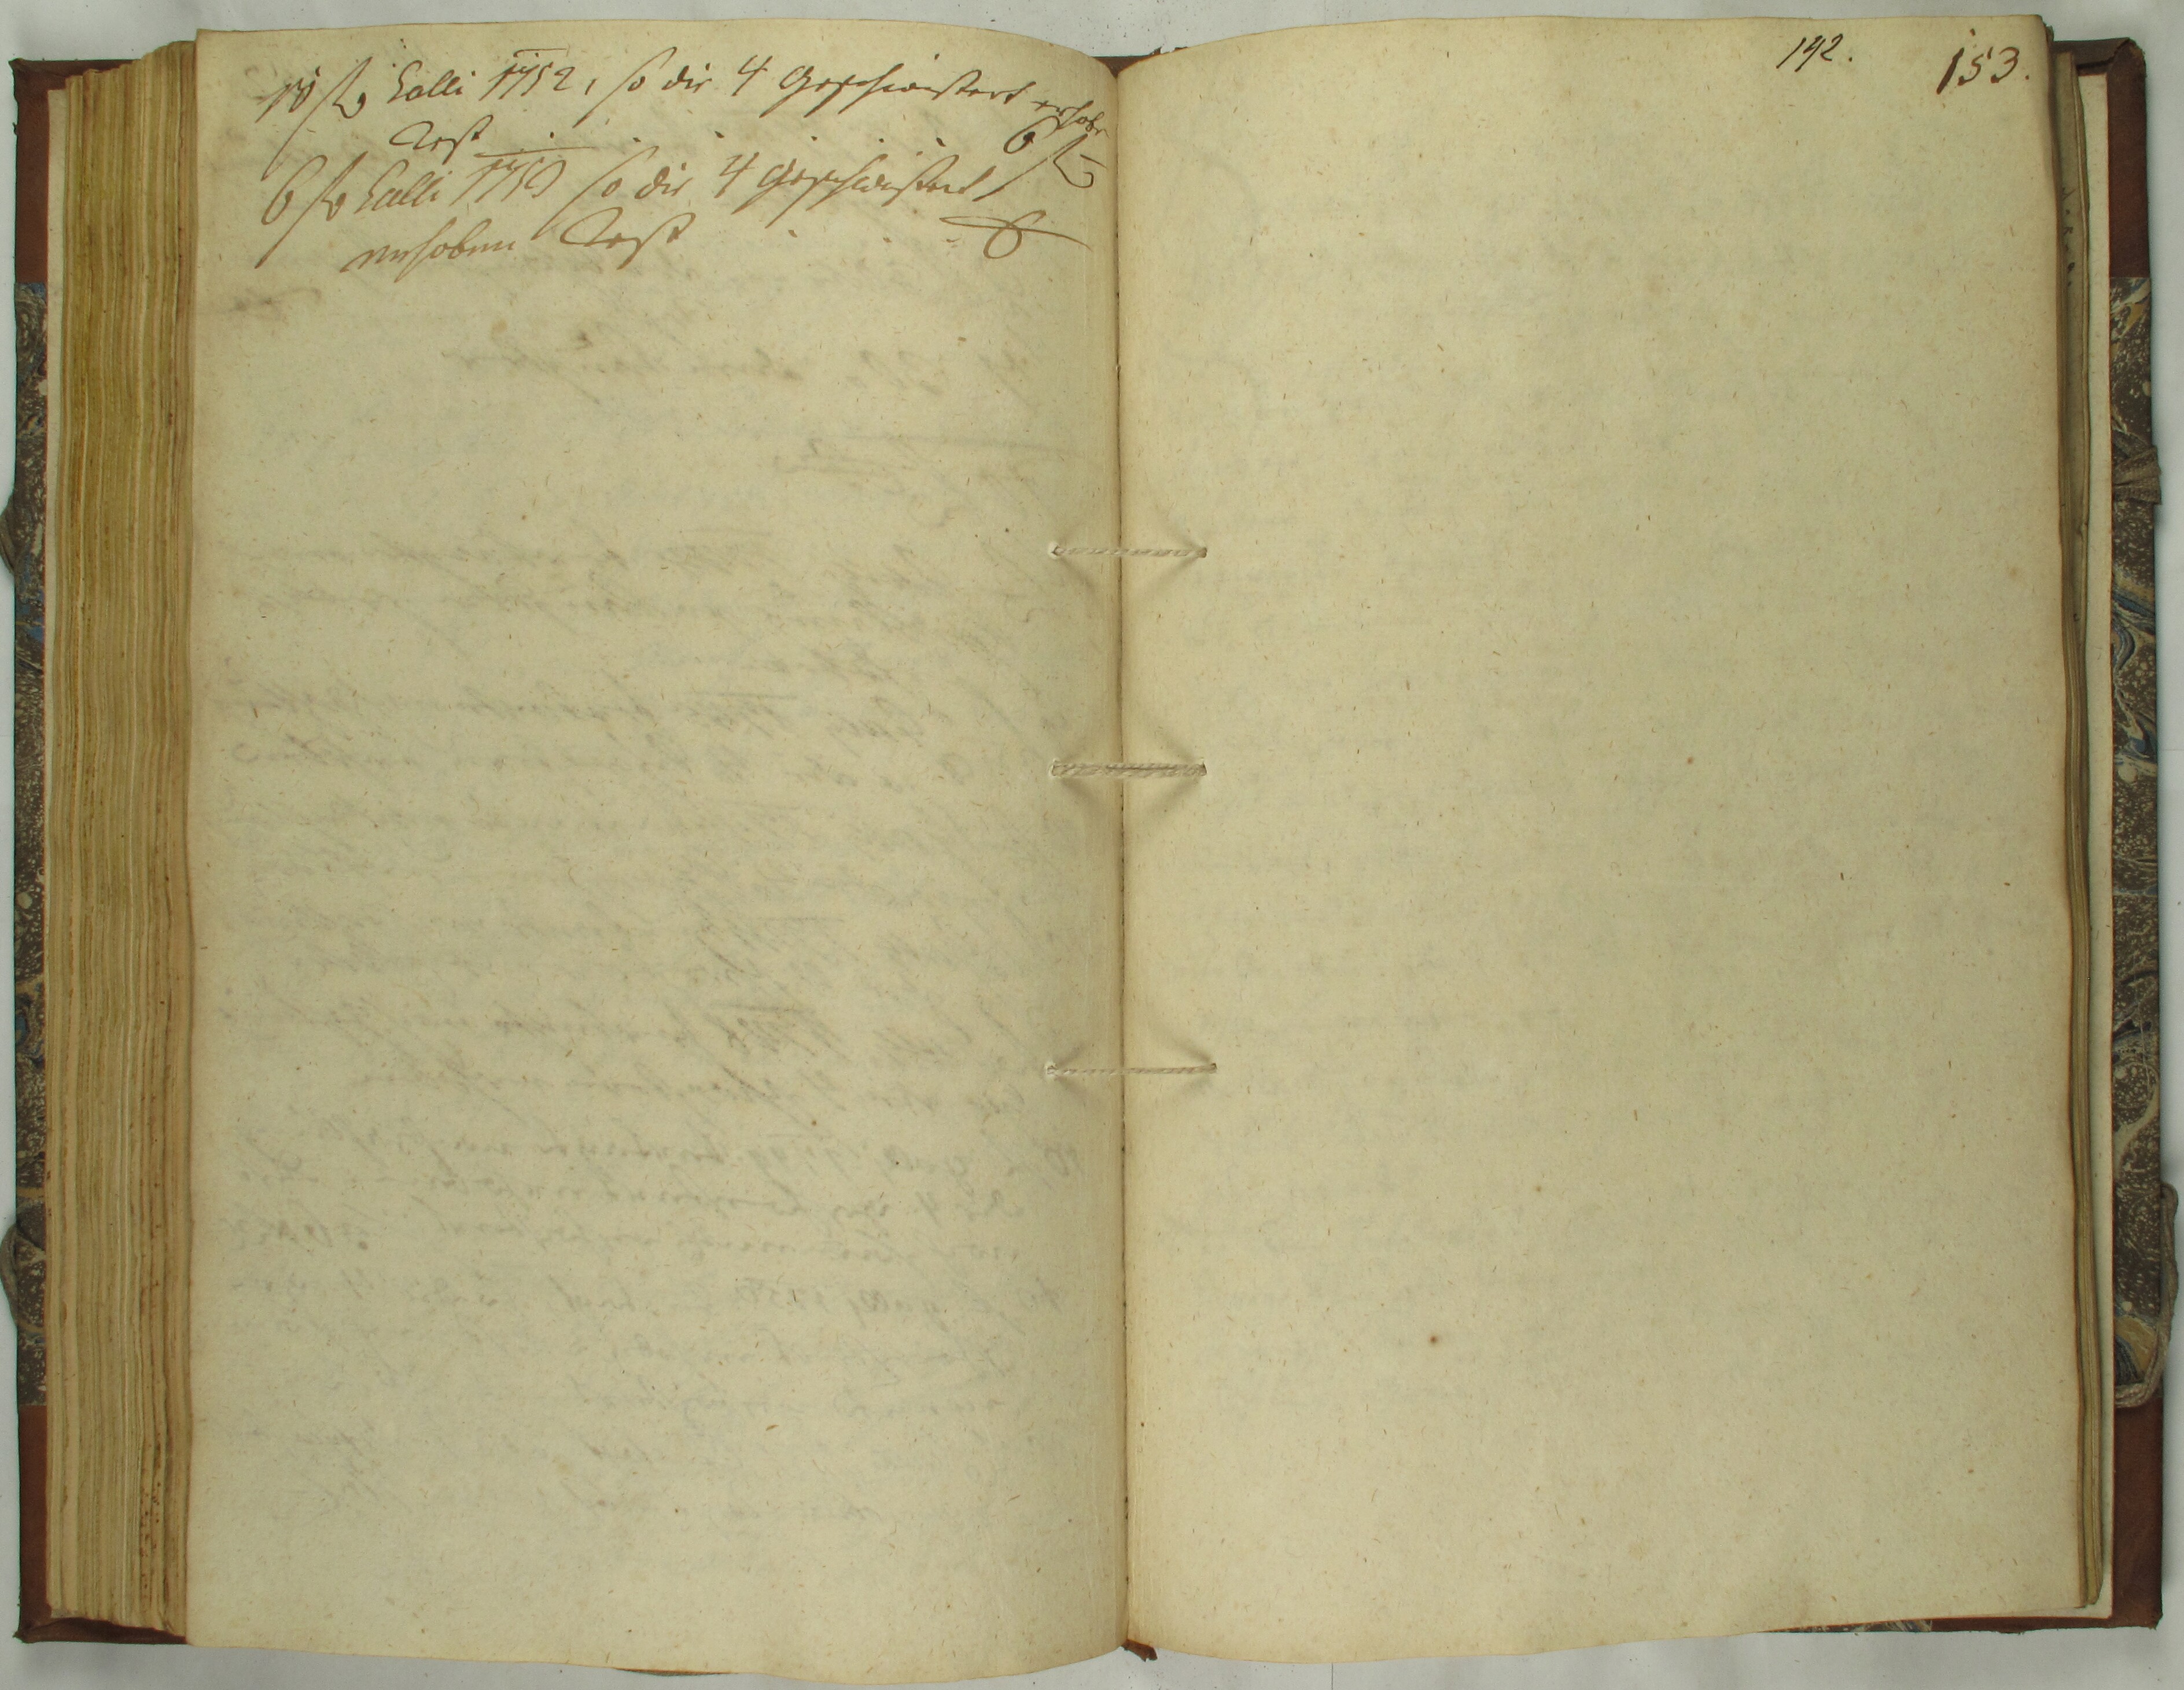 10 fl Galli 1752, so die 4 Geschwistert erhobe
Rest 6 fl
6 fl Galli 1753 so die 4 Geschwistert
erhoben Rest
142. 153.